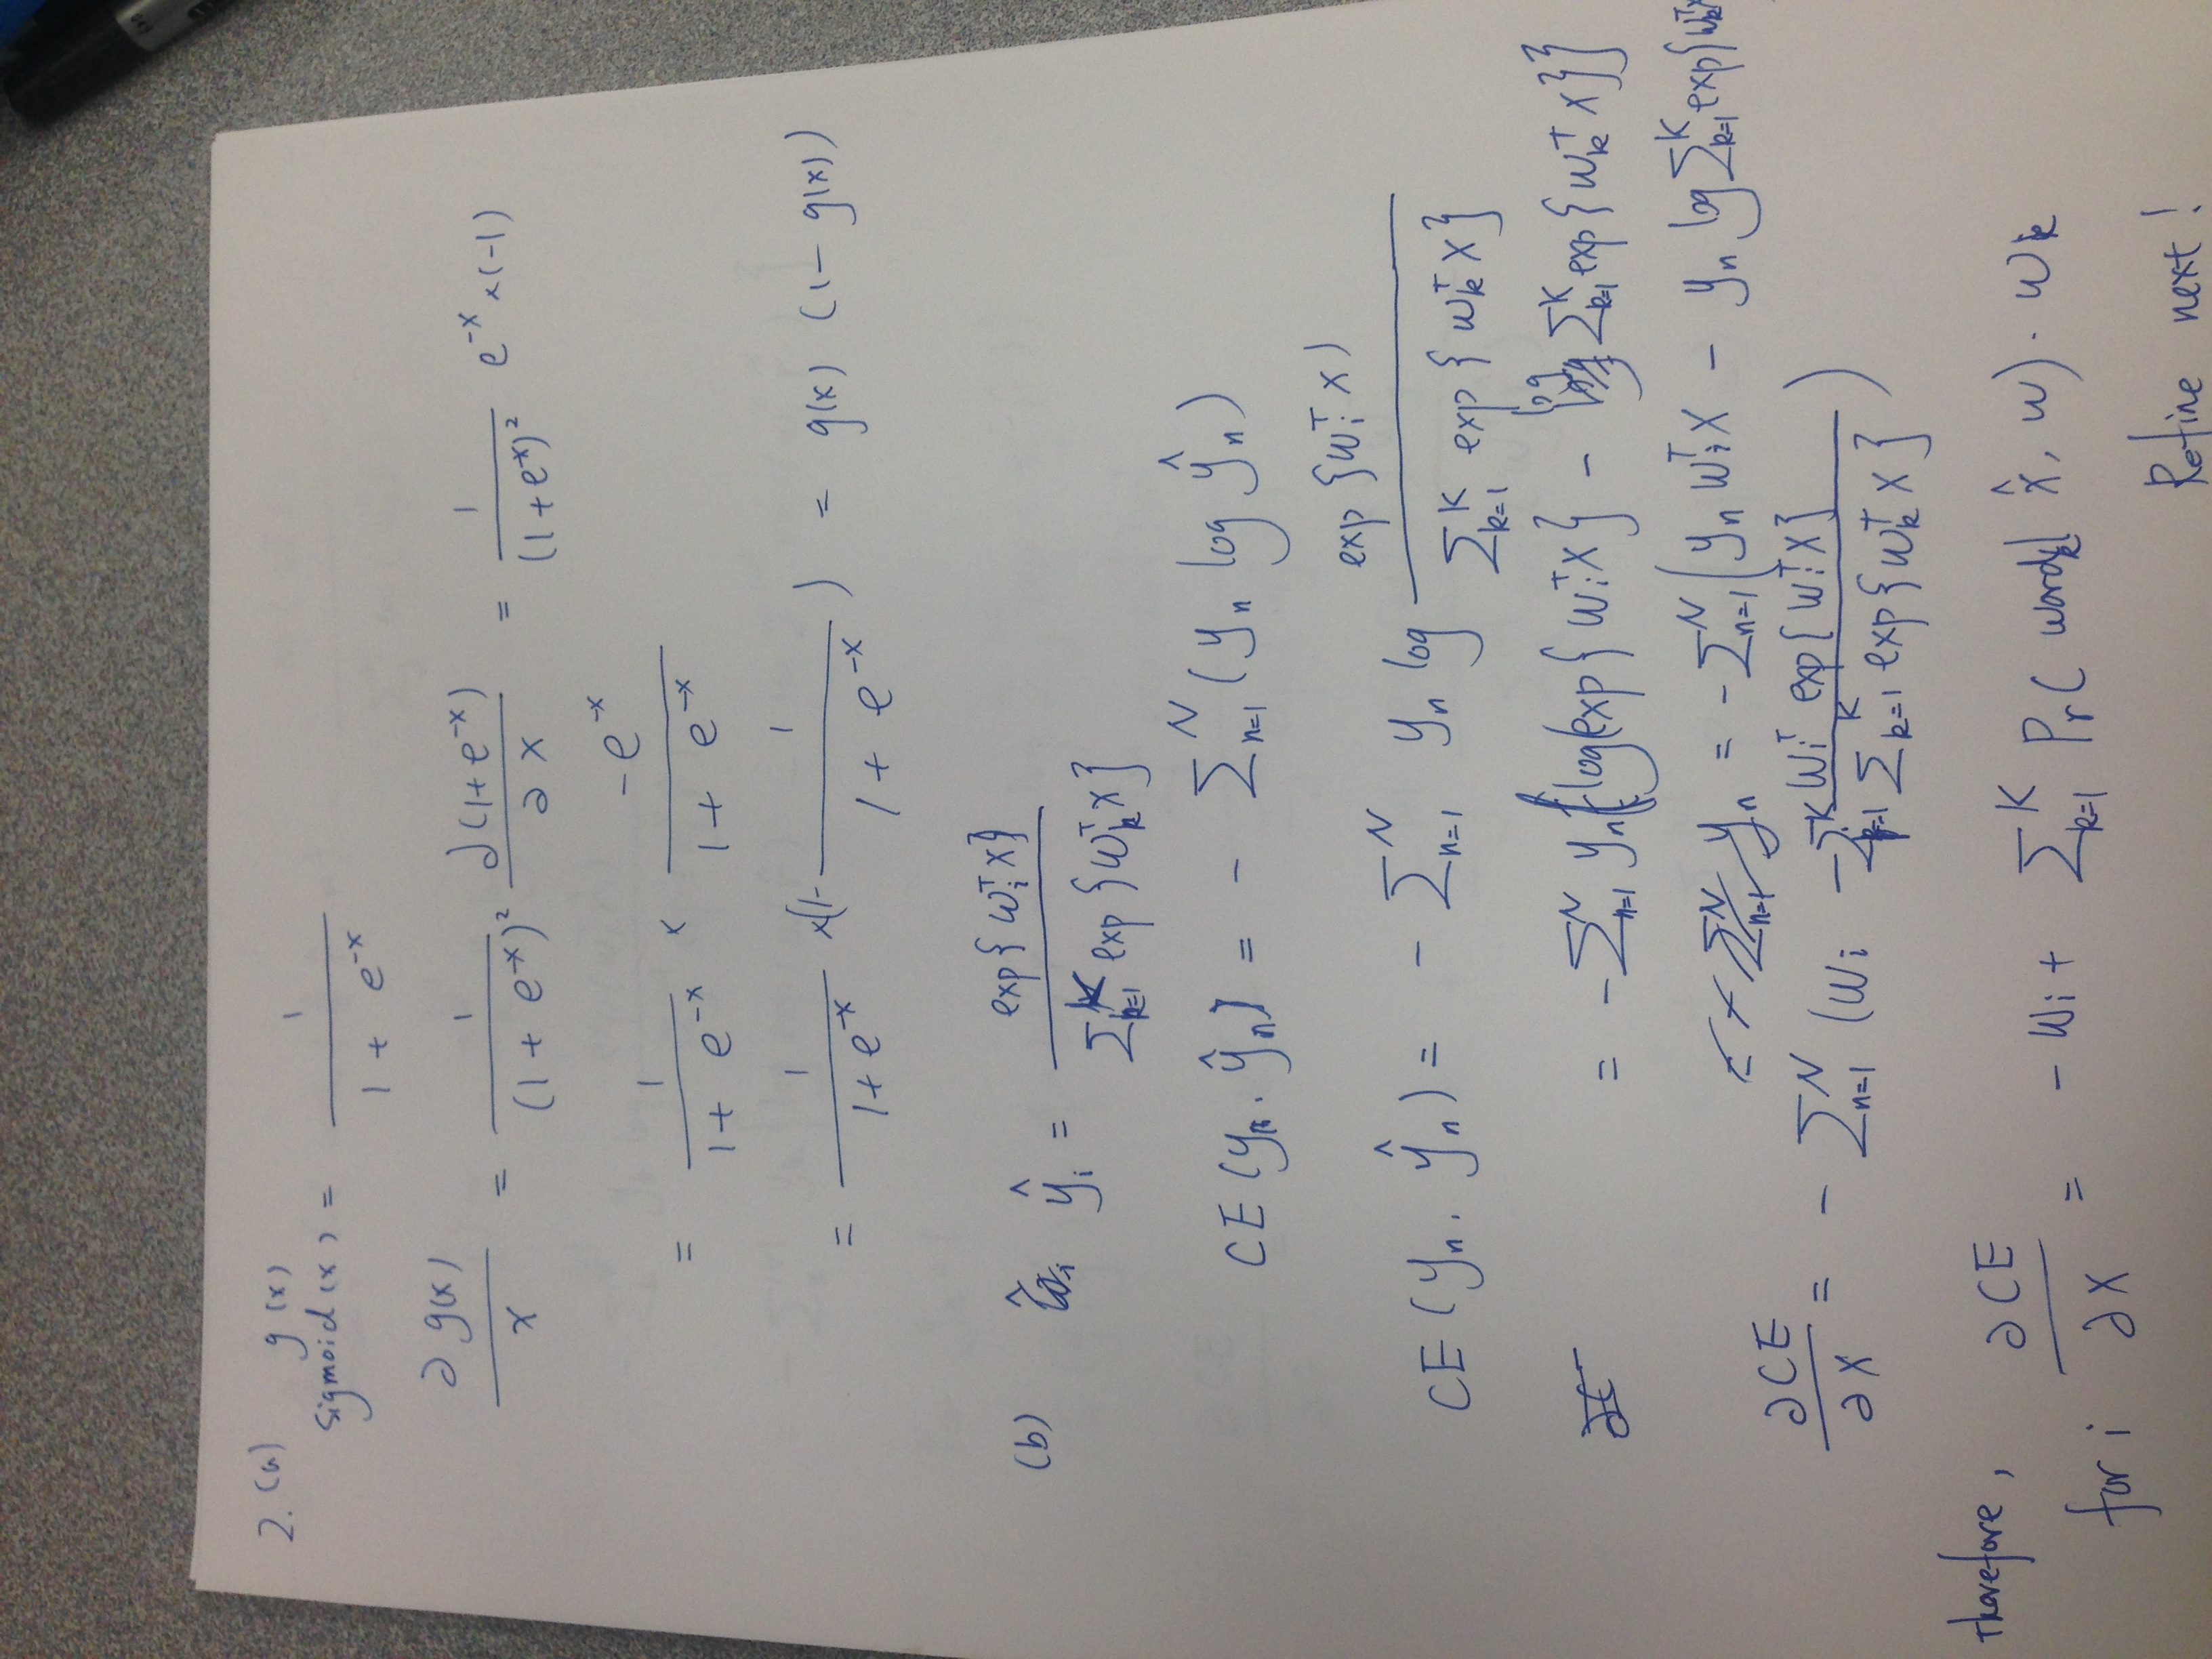 2. (a) g(x)
sigmoid(x) = 1 / (1 + e^{-x})
∂g(x) / x = 1 / (1 + e^{-x})² ∂(1+e^{-x}) / ∂x = 1 / (1+e^{-x})² e^{-x} × (-1)
= 1 / (1 + e^{-x}) × -e^{-x} / (1 + e^{-x})
= 1 / (1+e^{-x}) × (1- 1 / (1 + e^{-x})) = g(x) (1 - g(x))
(b) ŷ_i = exp{w_i^T x} / Σ_{k=1}^K exp{w_k^T x}
CE(y_n, ŷ_n) = - Σ_{n=1}^N (y_n log ŷ_n)
CE(y_n, ŷ_n) = - Σ_{n=1}^N y_n log exp{w_i^T x) / Σ_{k=1}^K exp{w_k^T x}
= -Σ_{n=1}^N y_n {log(exp{w_i^T x} - log Σ_{k=1}^K exp{w_k^T x}}
= -Σ_{n=1}^N (y_n w_i^T x - y_n log Σ_{k=1}^K exp{w_k^T x
∂CE / ∂x = - Σ_{n=1}^N (w_i - Σ_{k=1}^K w_i^T exp{w_i^T x} / Σ_{k=1}^K exp{w_k^T x})
Therefore,
for i ∂CE / ∂x = - w_i + Σ_{k=1}^K Pr(word_k | x̂, w) · w_k
Refine next!